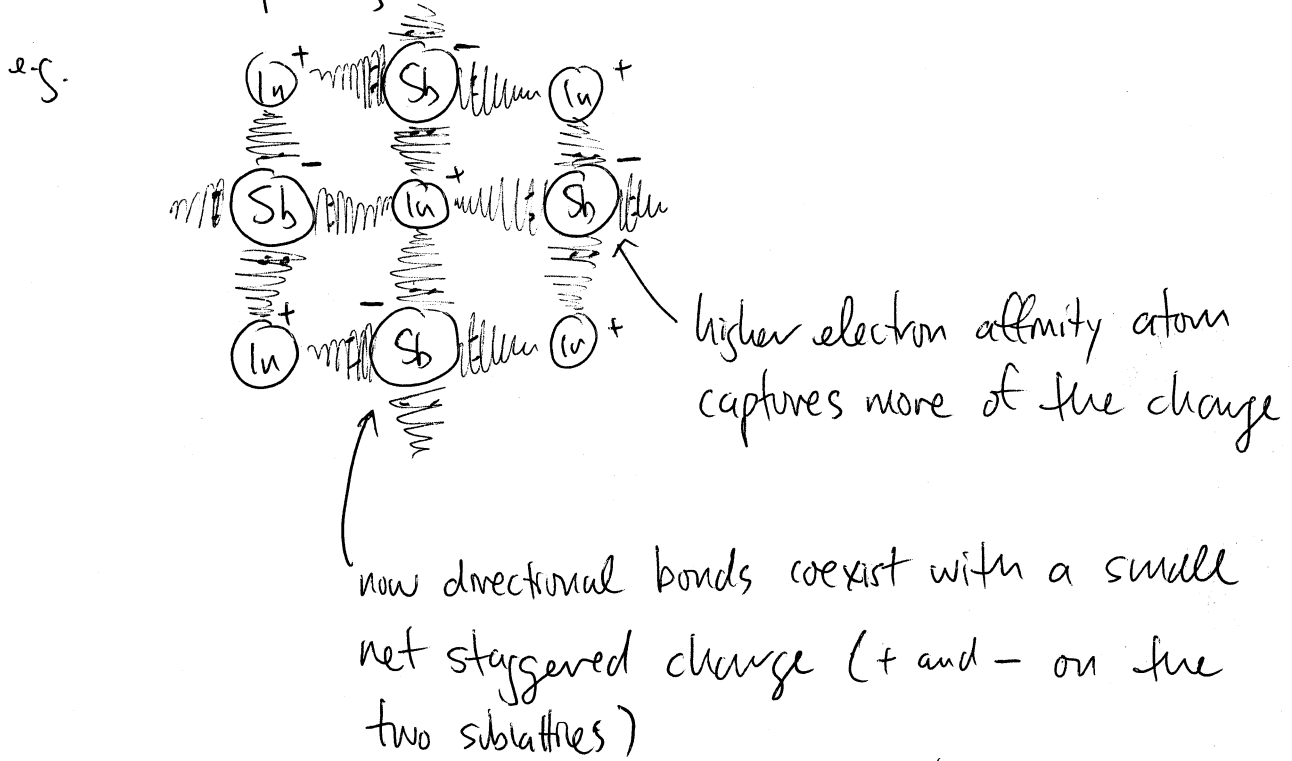 e.g.
In + Sb - In +
Sb - In + Sb -
In + Sb - In +
higher electron affinity atom
captures more of the charge
now directional bonds coexist with a small
net staggered charge (+ and - on the
two sublattices)